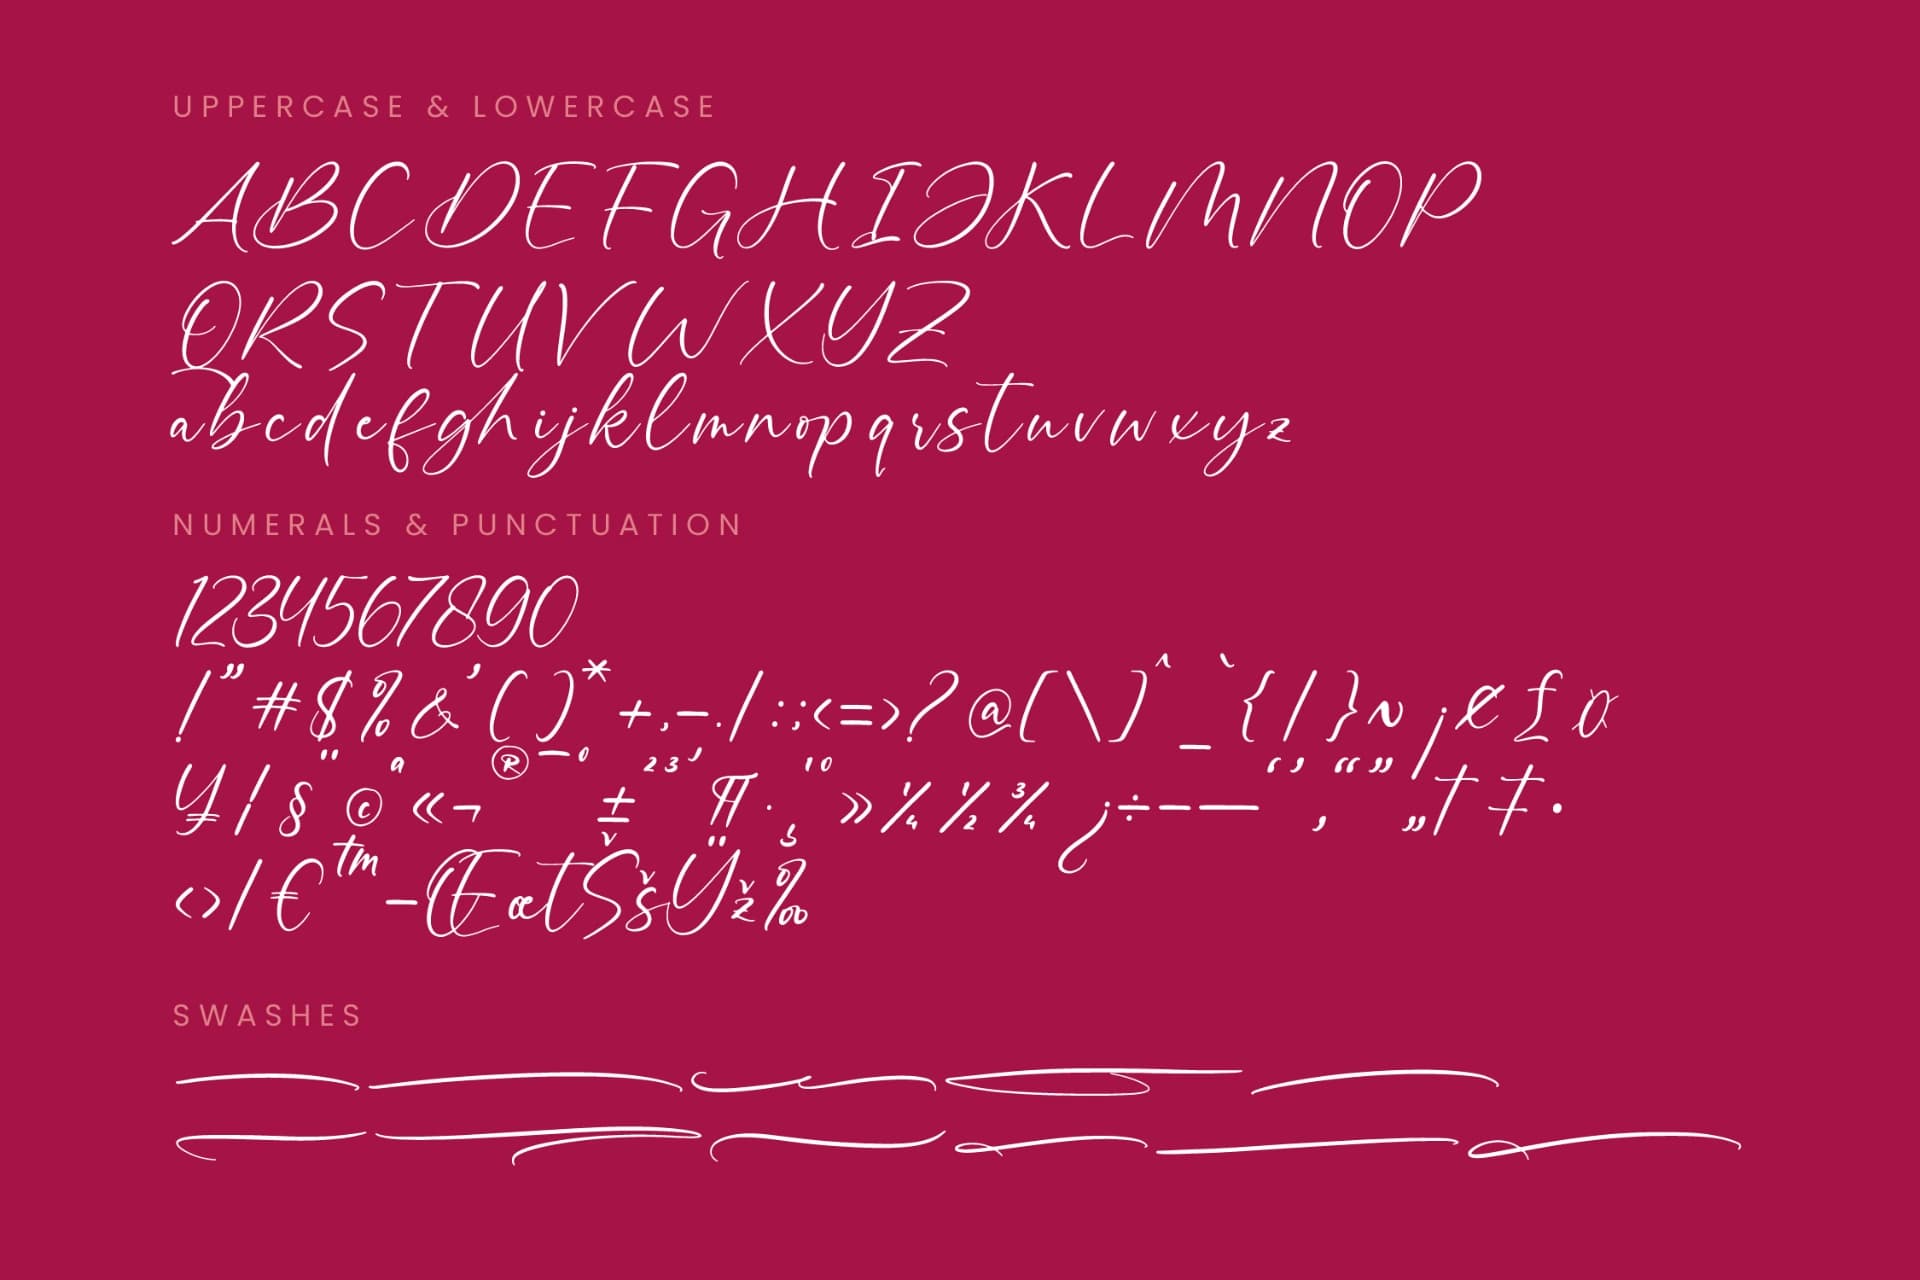 UPPERCASE & LOWERCASE
ABCDEFGHIJKLMNOP
QRSTUVWXYZ
abcdefghijklmnopqrstuvwxyz
NUMERALS & PUNCTUATION
1234567890
!"#$%&'()*+,-./:;<=>?@[\]^_`{|}~¡¢£¤
¥¦§¨©ª«¬®¯°±²³´¶·¸¹º»¼½¾¿÷–—‘’‚“”„†‡•
‹›⁄€™−ŒœŁŠšŸž‰
SWASHES